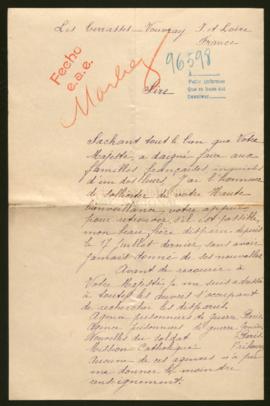 Les Terrasses Vouvray I. et Loire
France
Fecho
e.a.e.
96598
Sire
Sachant tout le bien que Votre
Majesté, a daigné faire aux
familles françaises inquiètes
d'un des leurs, j'ai l'honneur
de solliciter de votre Haute
bienveillance, votre appui
pour retrouver s'il est possible
mon beau frère disparu depuis
le 7 Juillet dernier, sans avoir
jamais donné de ses nouvelles
Avant de recourir à
Votre Majesté, je me suis adressée
à toutes les œuvres s'occupant
de rechercher les disparus.
Agence prisonniers de guerre
Agence prisonniers de guerre
Nouvelles du soldat Paris
Mission Catholique Fribourg
Aucune de ces agences n'a pu
me donner le moindre
renseignement.